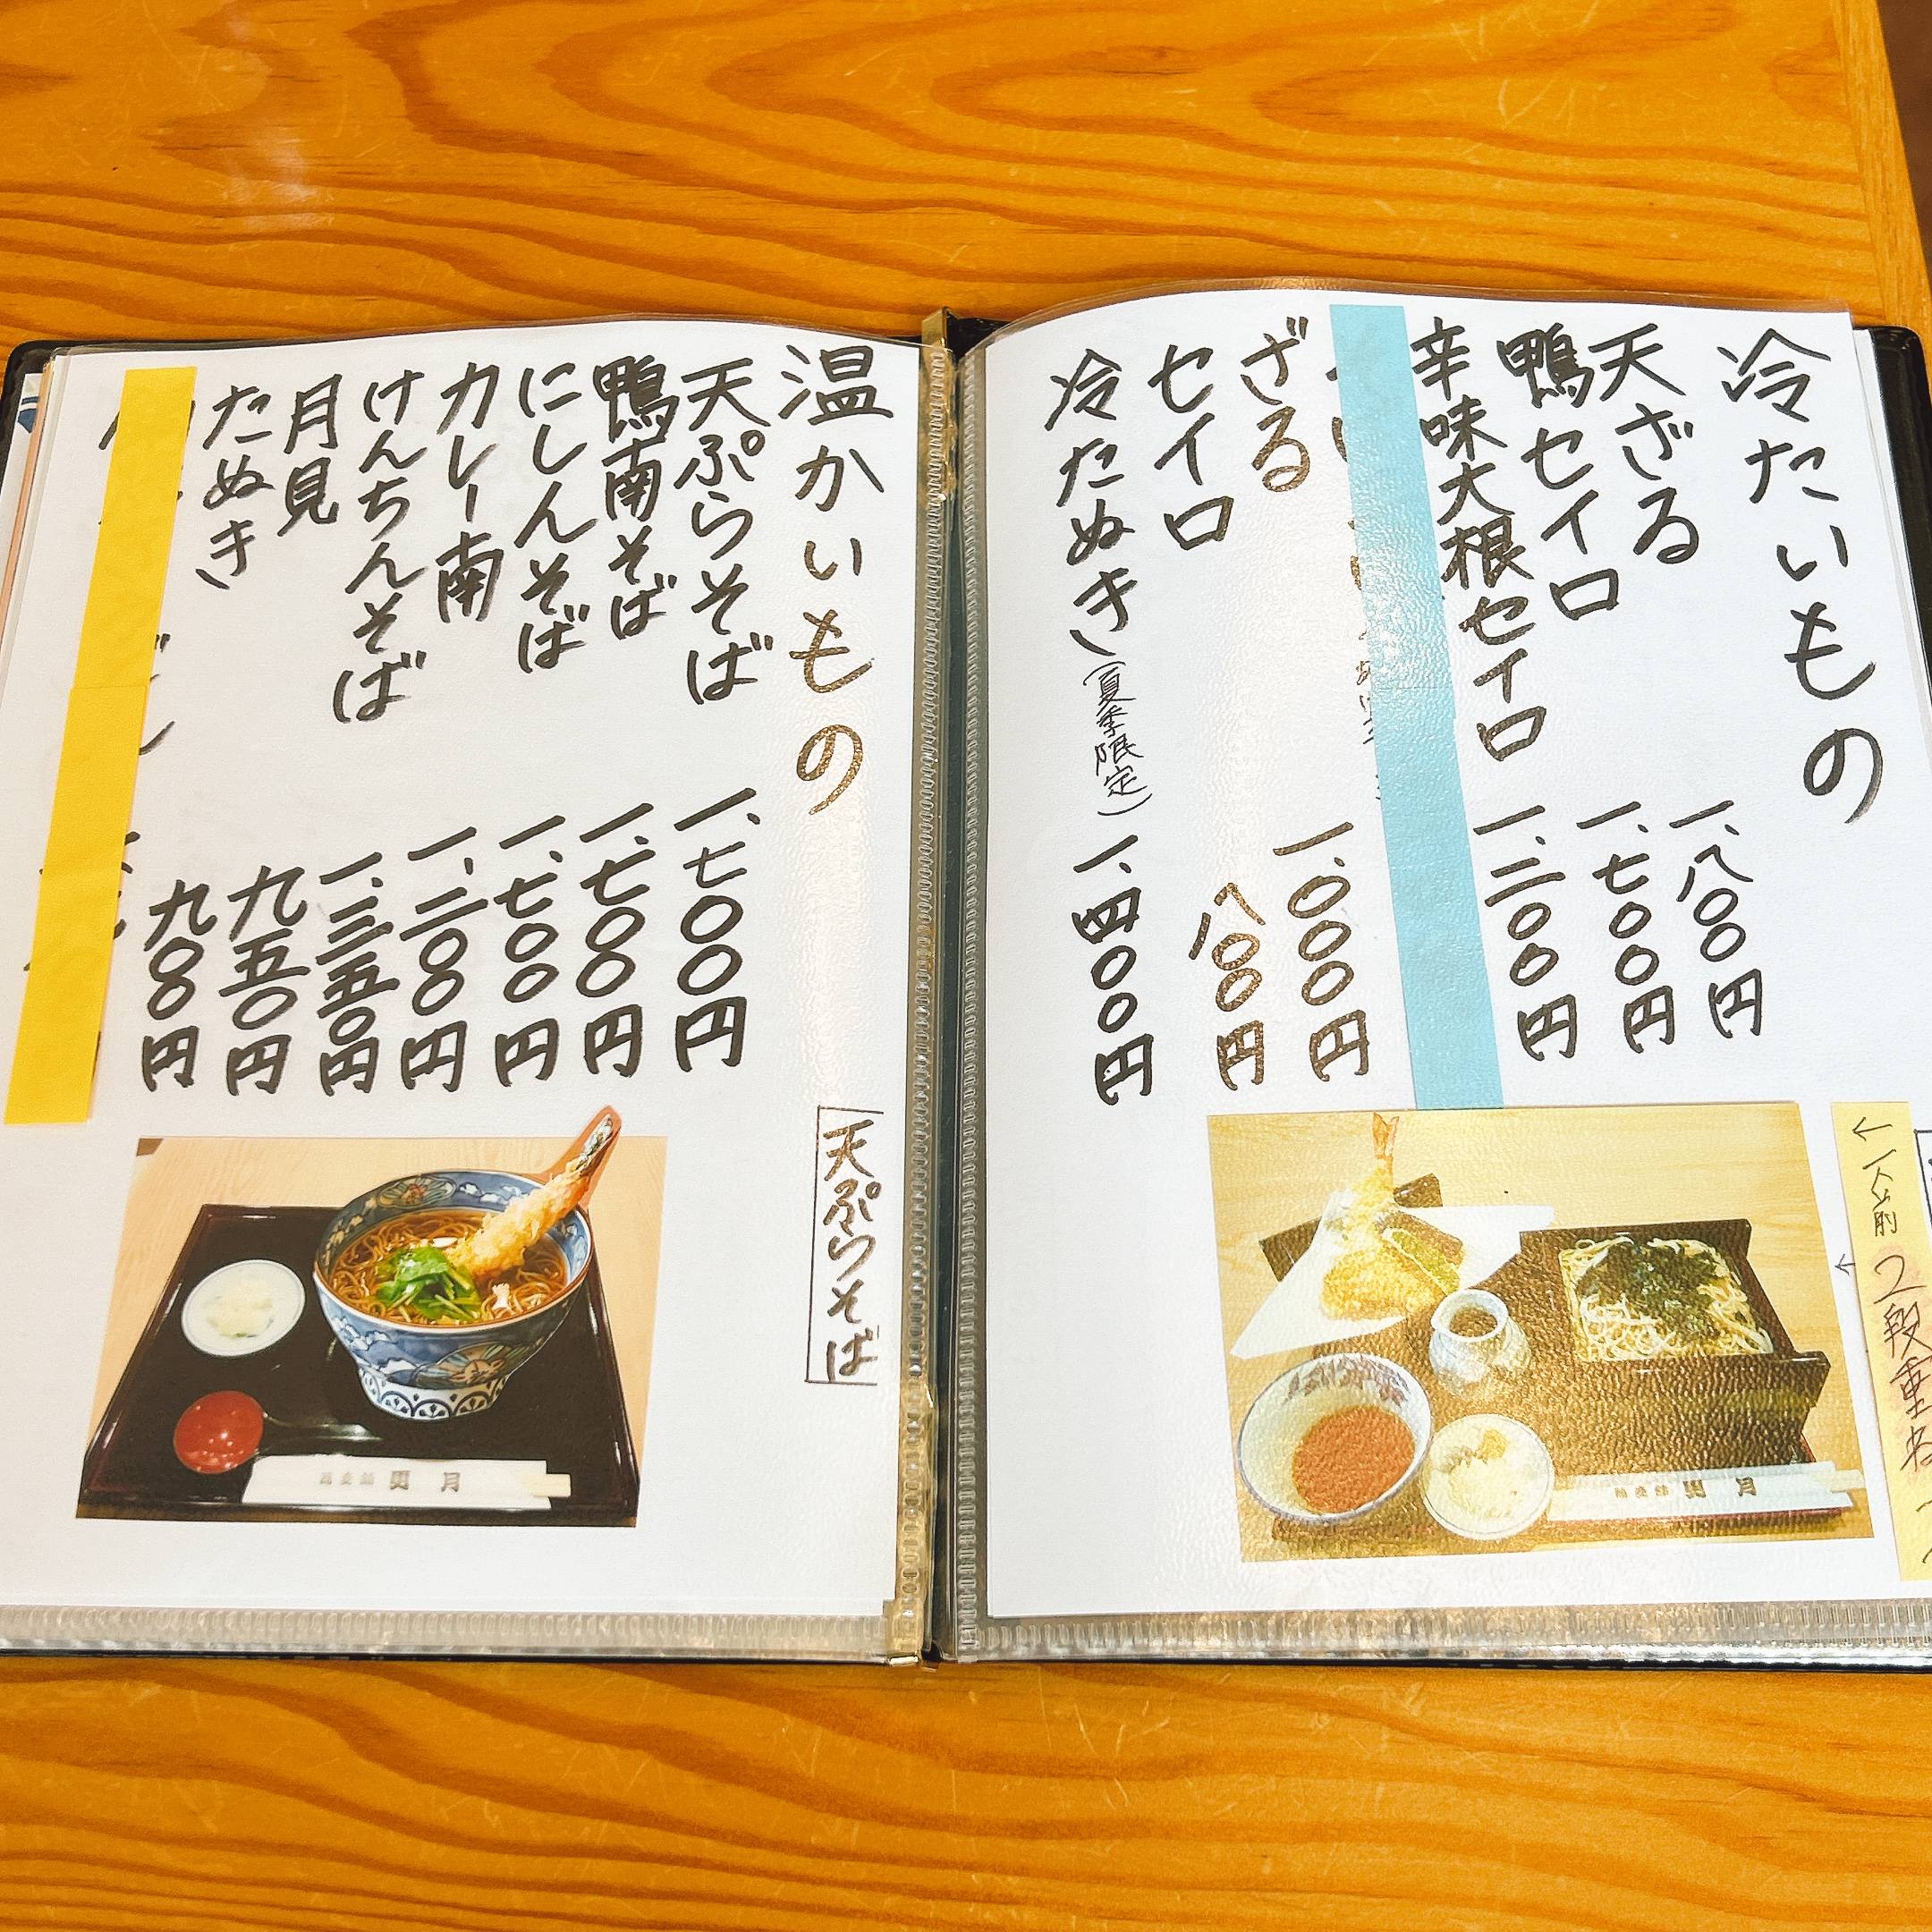 冷たいもの
天ざる 一、八〇〇円
鴨セイロ 一、七〇〇円
辛味大根セイロ 一、二〇〇円
ざる 一、〇〇〇円
セイロ 八〇〇円
冷たぬき(夏季限定) 一、四〇〇円
←一人前
2段重
更月
温かいもの
天ぷらそば 一、七〇〇円
鴨南そば 一、七〇〇円
にしんそば 一、七〇〇円
カレー南 一、二〇〇円
けんちんそば 一、三五〇円
月見 九五〇円
たぬき 九〇〇円
天ぷらそば
更月